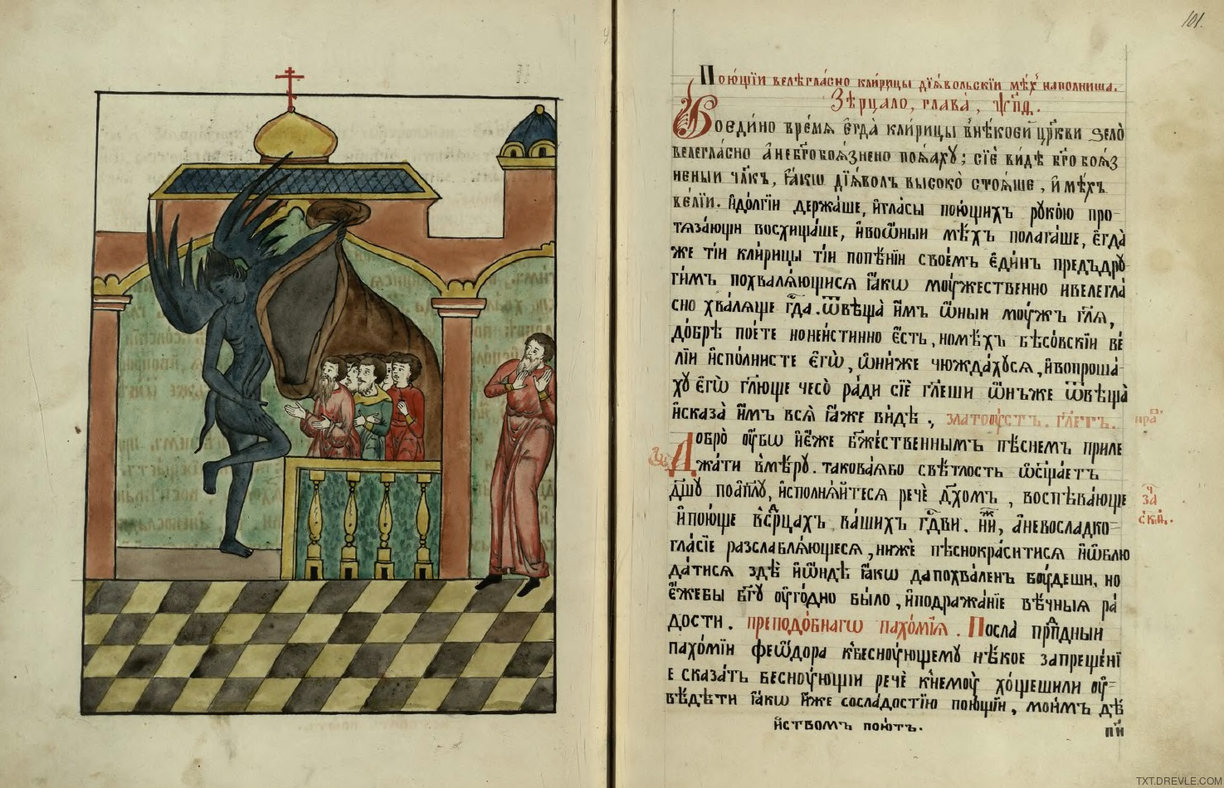 101.
Пою́щїи велегла́сно кли́рицы дїѧ́вольскїи мѣ́хъ наполниша.
Зѣ́рцало, глава̀, ѱ҃пд.
Воеди́но вре́мѧ є҆гда̀ кли́рицы внѣ́коей цр҃кви ѕело̀
велегласно а҆небг҃обоѧ́знено поѧ́хꙋ; сїѐ ви́дѣ бг҃обоѧз
неныи чл҃къ, ꙗ҆́кѡ дїѧ́волъ высоко̀ стоѧ́ше, и҆ мѣ́хъ
ве́лїи. и҆до́лгїи держа́ше, и҆гла́сы пою́щихъ рꙋко́ю про
тѧза́ющи восхища́ше, и҆воѡ́ныи мѣ́хъ полага́ше, є҆гда̀
же ті́и кли́рицы ті́и попѣ́нїи свое́мъ є҆ди́нъ предъдрꙋ
ги́мъ похвалѧ́ющисѧ ꙗ҆́кѡ мꙋ́жественно ивелегла́
сно хва́лѧще гд҃а. ѿвѣща̀ и҆̀мъ ѻ҆́ныи мꙋ́жъ гл҃ѧ,
до́брѣ пое́те ноне́истинно є҆́сть, номѣ́хъ бѣсо́вскїи ве́
лїи и҆спо́лнисте є҆гѡ̀, ѻ҆ни́же чюжда́хꙋсѧ, и҆вопроша́
хꙋ є҆гѡ̀ гл҃юще чесо̀ ра́ди сїѐ гл҃еши ѻ҆́нъже ѿвѣща̀
и҆сказа̀ и҆̀мъ всѧ̀ ꙗ҆́же ви́дѣ., златоꙋ́стъ. гл҃етъ.
Добро̀ ꙋ҆́бѡ и҆є҆́же бж҃е́ственнымъ пѣ́снемъ приле
жа́ти вмѣ́рꙋ. такова́ѧбо свѣ́тлость ѡ҆сїѧ́етъ
дш҃ꙋ поап҃лꙋ, и҆сполнѧ́йтесѧ речѐ дх҃омъ, воспѣва́юще
и҆пою́ще всрⷣцахъ ва́шихъ гд҃ви. нн҃ѣ, а҆невосладко=
гла́сїе разслаблѧ́ющесѧ, ни́жѐ пѣснокраси́тисѧ и҆ѡ҆блю
да́тисѧ здѣ̀ и҆ѻ҆́ндѣ ꙗ҆́кѡ дапохва́ленъ бꙋ́деши, но
є҆́жебы бг҃ꙋ ꙋ҆го́дно бы́ло, и҆подража́нїе вѣ́чныѧ ра́
дости. преподо́бнагѡ пахо́мїѧ. Посла̀ прпⷣбныи
пахо́мїи феѡ́дора кбеснꙋ́ющемꙋ нѣ́кое запреще́нї
е сказа́ть беснꙋ́ющїи речѐ кнемꙋ̀ хо́щешили ꙋ҆=
вѣ́дѣти ꙗ҆́кѡ и҆́же сосла́достїю пою́щїи, мои́мъ дѣ́
йствомъ пою́тъ.
TXT.DREVLE.COM